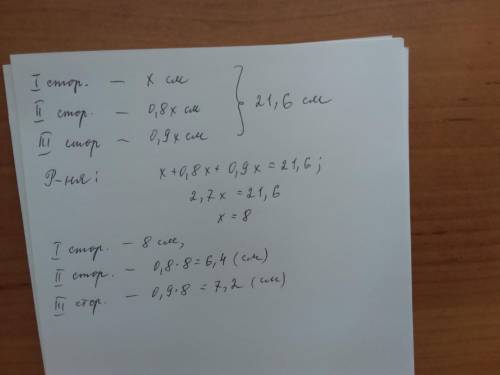 I стор. — x см
II стор. — 0,8x см } 21,6 см
III стор — 0,9x см
Р-ня: x+0,8x+0,9x=21,6;
2,7x=21,6
x=8
I стор. — 8 см,
II стор. — 0,8·8=6,4 (см)
III стор. — 0,9·8=7,2 (см)